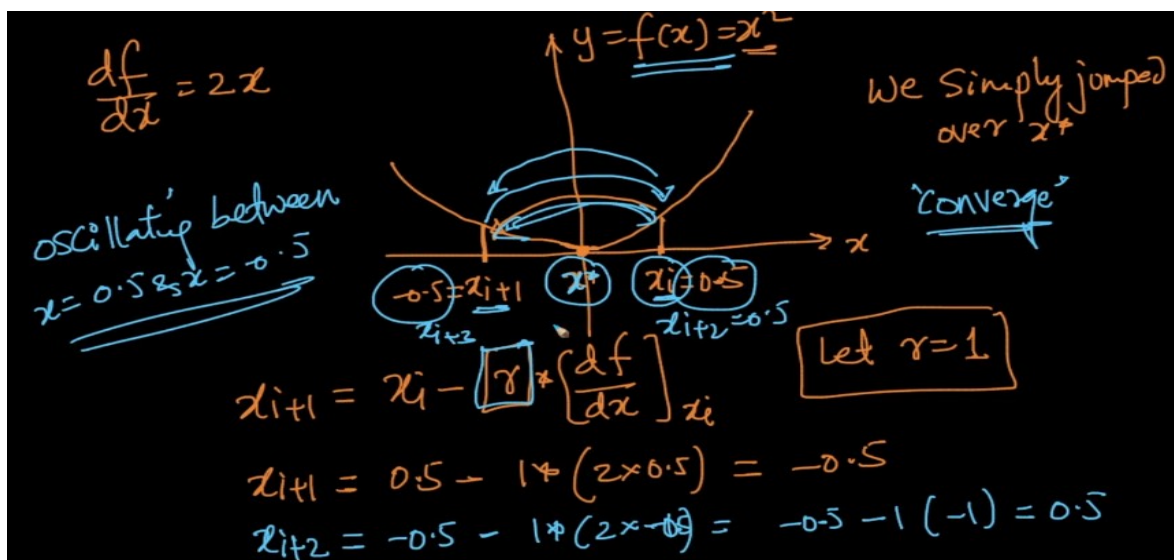 df/dx = 2x
y = f(x) = x²
We Simply jumped
over x*
"Converge"
oscillating between
x = 0.5 & x = -0.5
x
-0.5 = xi+1
x*
xi = 0.5
xi+3
xi+2 = 0.5
Let r=1
xi+1 = xi - r * [df/dx]xi
xi+1 = 0.5 - 1*(2×0.5) = -0.5
xi+2 = -0.5 - 1*(2×-0.5) = -0.5 - 1(-1) = 0.5